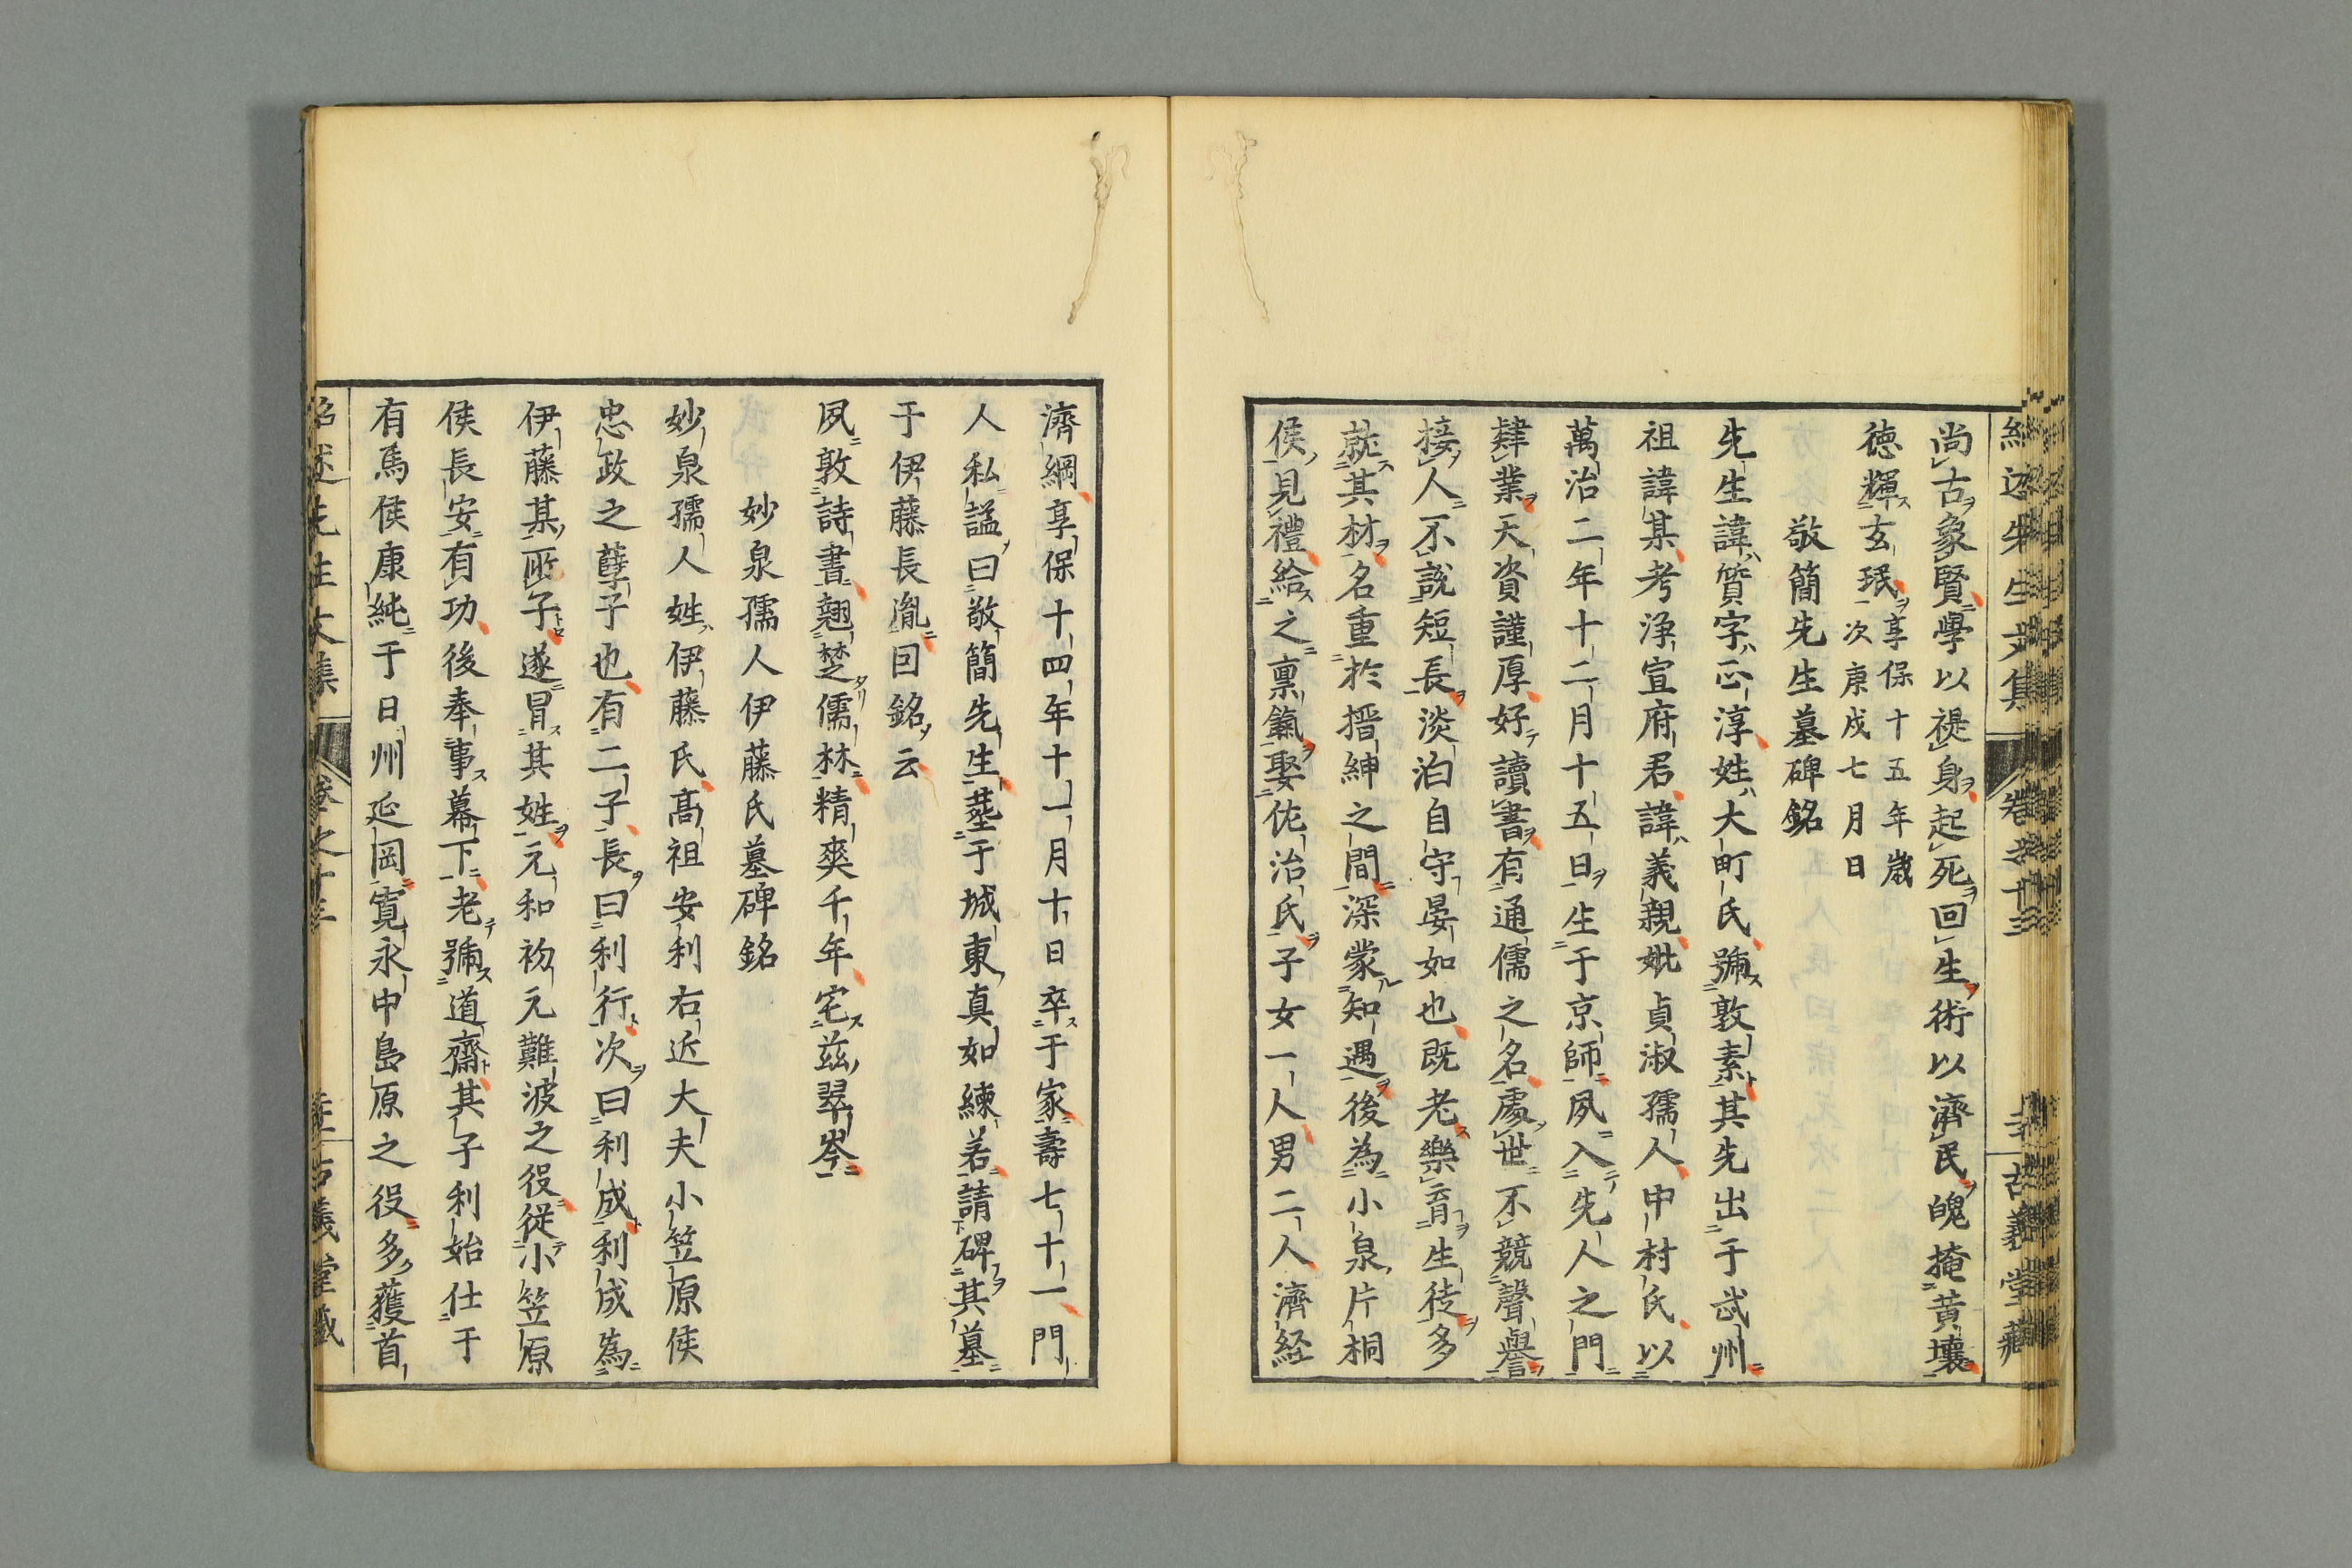 尚古象賢學以褆身起死回生術以濟民魄掩黄壤
德輝玄珉享保十五年歳
次庚戌七月日
敬簡先生墓碑銘
先生諱質字正淳姓大町氏號敦素其先出于武州
祖諱某考浄宣府君諱義親妣貞淑孺人中村氏以
萬治二年十二月十五日生于京師夙入先人之門
肄業天資謹厚好讀書有通儒之名處世不競聲譽
接人不說短長淡泊自守晏如也既老樂育生徒多
就其材名重於搢紳之間深蒙知遇後為小泉片桐
侯見禮給之稟氣娶佐治氏子女一人男二人濟経
濟綱享保十四年十一月十日卒于家壽七十一門
人私諡曰敬簡先生葬于城東真如練若請碑其墓
于伊藤長胤回銘云
夙敦詩書翹楚儒林精爽千年宅茲翠岑
妙泉孺人伊藤氏墓碑銘
妙泉孺人姓伊藤氏髙祖安利右近大夫小笠原侯
忠政之孽子也有二子長曰利行次曰利成利成為
伊藤某所子遂冒其姓元和初元難波之役従小笠原
侯長安有功後奉事幕下老號道齋其子利始仕于
有馬侯康純于日州延岡寛永中島原之役多獲首
卷之十三
古義堂藏